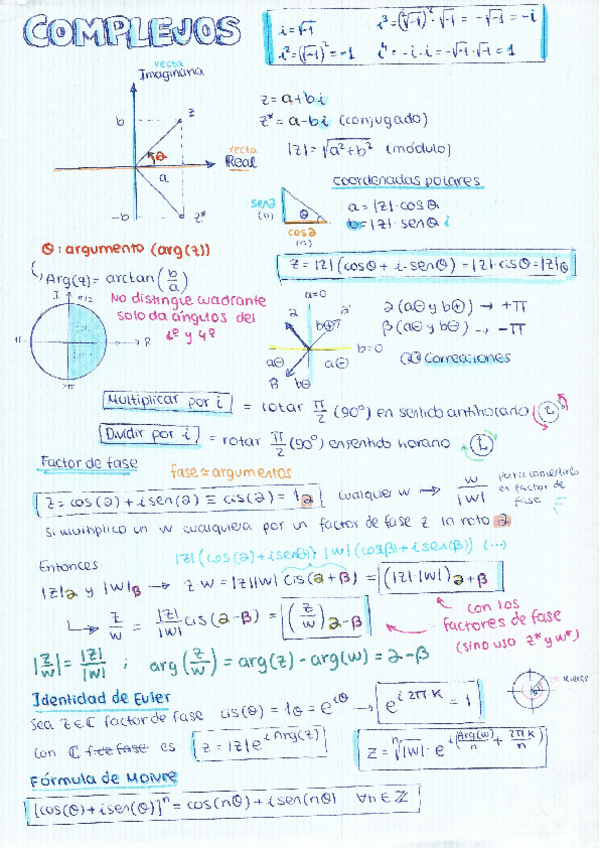 COMPLEJOS
i=√-1 i³=(√-1)²·√-1 = -√-1 = -i
i²=(√-1)²=-1 i⁴=-i·i=-√-1·√-1=1
recta
Imaginaria
b z
a
recta
Real
a
-b z*
z=a+bi
z*=a-bi (conjugado)
|z|=√a²+b² (módulo)
coordenadas polares
sen∂
(b)
θ
cos∂
(a)
a=|z|·cosθ
b=|z|·senθ i
z=|z|(cosθ+i·senθ)=|z|·cisθ=|z|θ
θ: argumento (arg(z))
Arg(z)=arctan(b/a)
No distingue cuadrante
solo da ángulos del
1º y 4º
I π/2
π R
a=0
∂ ∂'
b⊕?
a⊖ a⊖ b=0
β b⊖
∂(a⊖ y b⊕) → +π
β(a⊖ y b⊖) → -π
Correcciones
Multiplicar por i = rotar π/2 (90º) en sentido antihorario
Dividir por i = rotar π/2 (90º) en sentido horario
Factor de fase
fase≈argumentos
z=cos(∂)+isen(∂)≡cis(∂)=1∂ cualquier w → w/|w| para convertirlo
es factor de
fase
Si multiplico un w cualquiera por un factor de fase z lo roto ∂
|z|(cos(∂)+isenθ)·|w|(cosβ)+isen(β)) (...)
Entonces
|z|∂ y |w|β → z·w=|z||w| cis(∂+β) = (|z|·|w|)∂+β
z/w = |z|/|w| cis(∂-β) = (z/w)∂-β
con los
factores de fase
(sino uso z* y w*)
|z/w|=|z|/|w| ; arg(z/w)=arg(z)-arg(w)=∂-β
Identidad de Euler
Sea z∈ℂ factor de fase cis(θ)=1θ=e^iθ → e^i2πK=1
con ℂ es z=|z|e^iArg(z) z=ⁿ√|w|·e^i(Arg(w)/n+2πK/n)
Fórmula de Moivre
[cos(θ)+isen(θ)]ⁿ=cos(nθ)+isen(nθ) ∀n∈ℤ